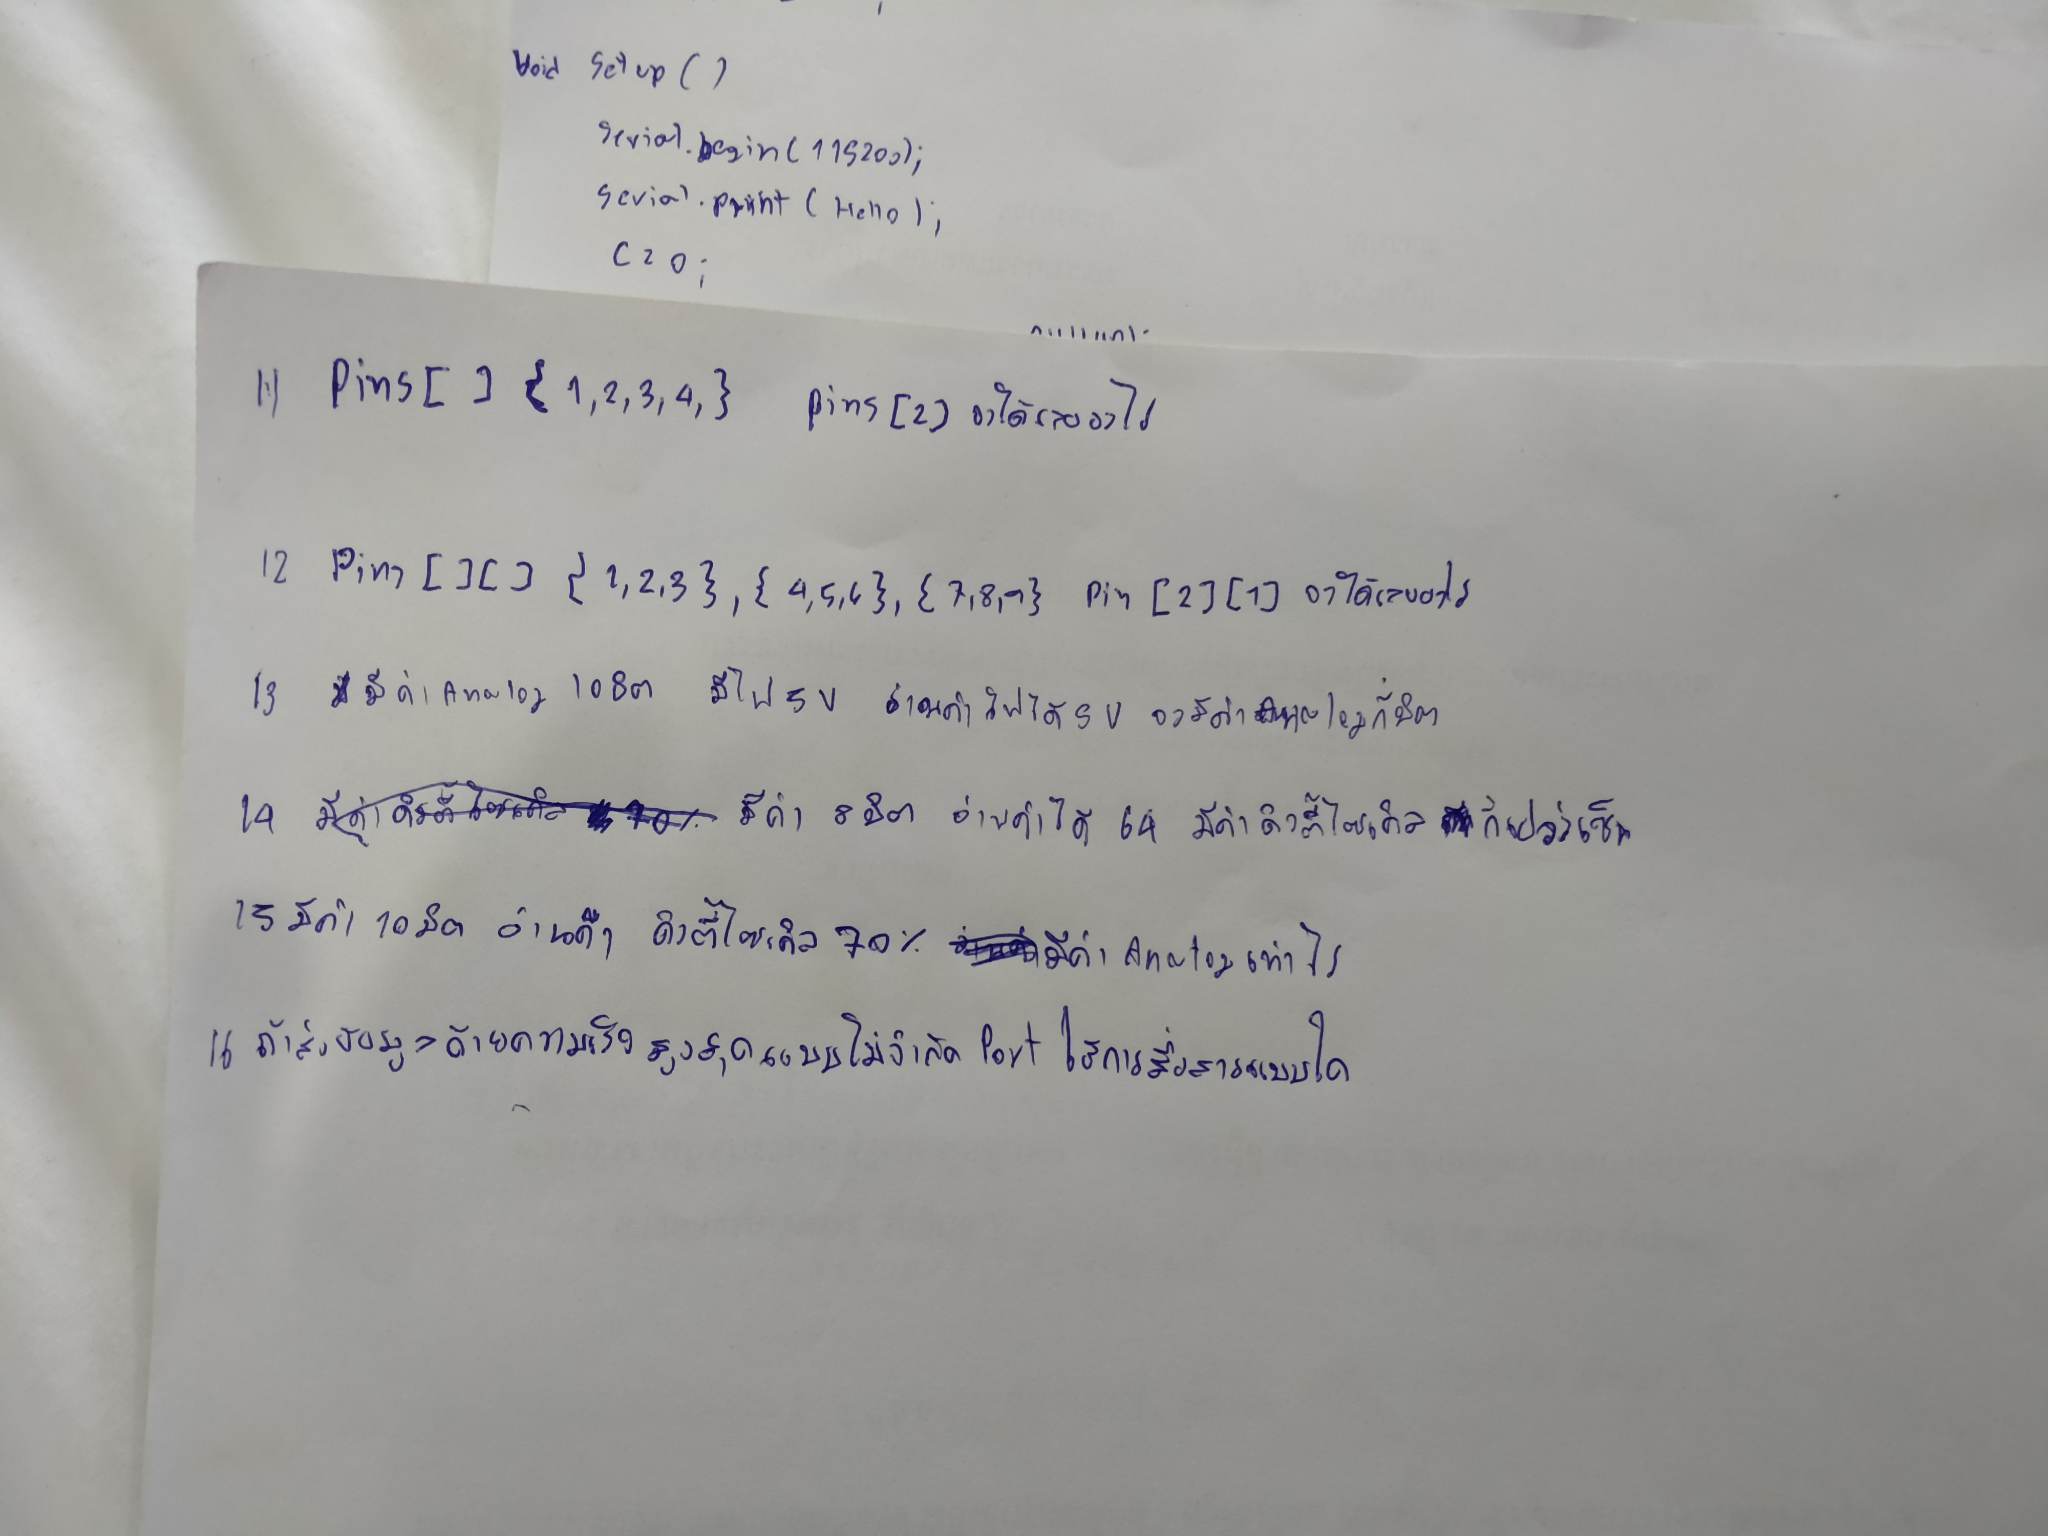 void Setup ( )
Serial.begin(115200);
Serial.print (Hello);
C = 0;
11 Pins [ ] { 1, 2, 3, 4, } Pins [2] จะได้เลขอะไร
12 Pins [ ] [ ] { 1, 2, 3 }, { 4, 5, 6 }, { 7, 8, 9 } Pin [2] [1] จะได้เลขอะไร
13 มีค่า Analog 10 บิต มีไฟ 5 V อ่านค่าไฟได้ 5 V จะมีค่า Analog กี่บิต
14 มีค่า 8 บิต อ่านค่าได้ 64 มีค่าดิวตี้ไซเคิล กี่เปอร์เซ็น
15 มีค่า 10 บิต อ่านค่า ดิวตี้ไซเคิล 70% มีค่า Analog เท่าไร
16 ถ้าส่งข้อมูลด้วยความเร็วสูงสุดแบบไม่จำกัด Port ใช้การสื่อสารแบบใด